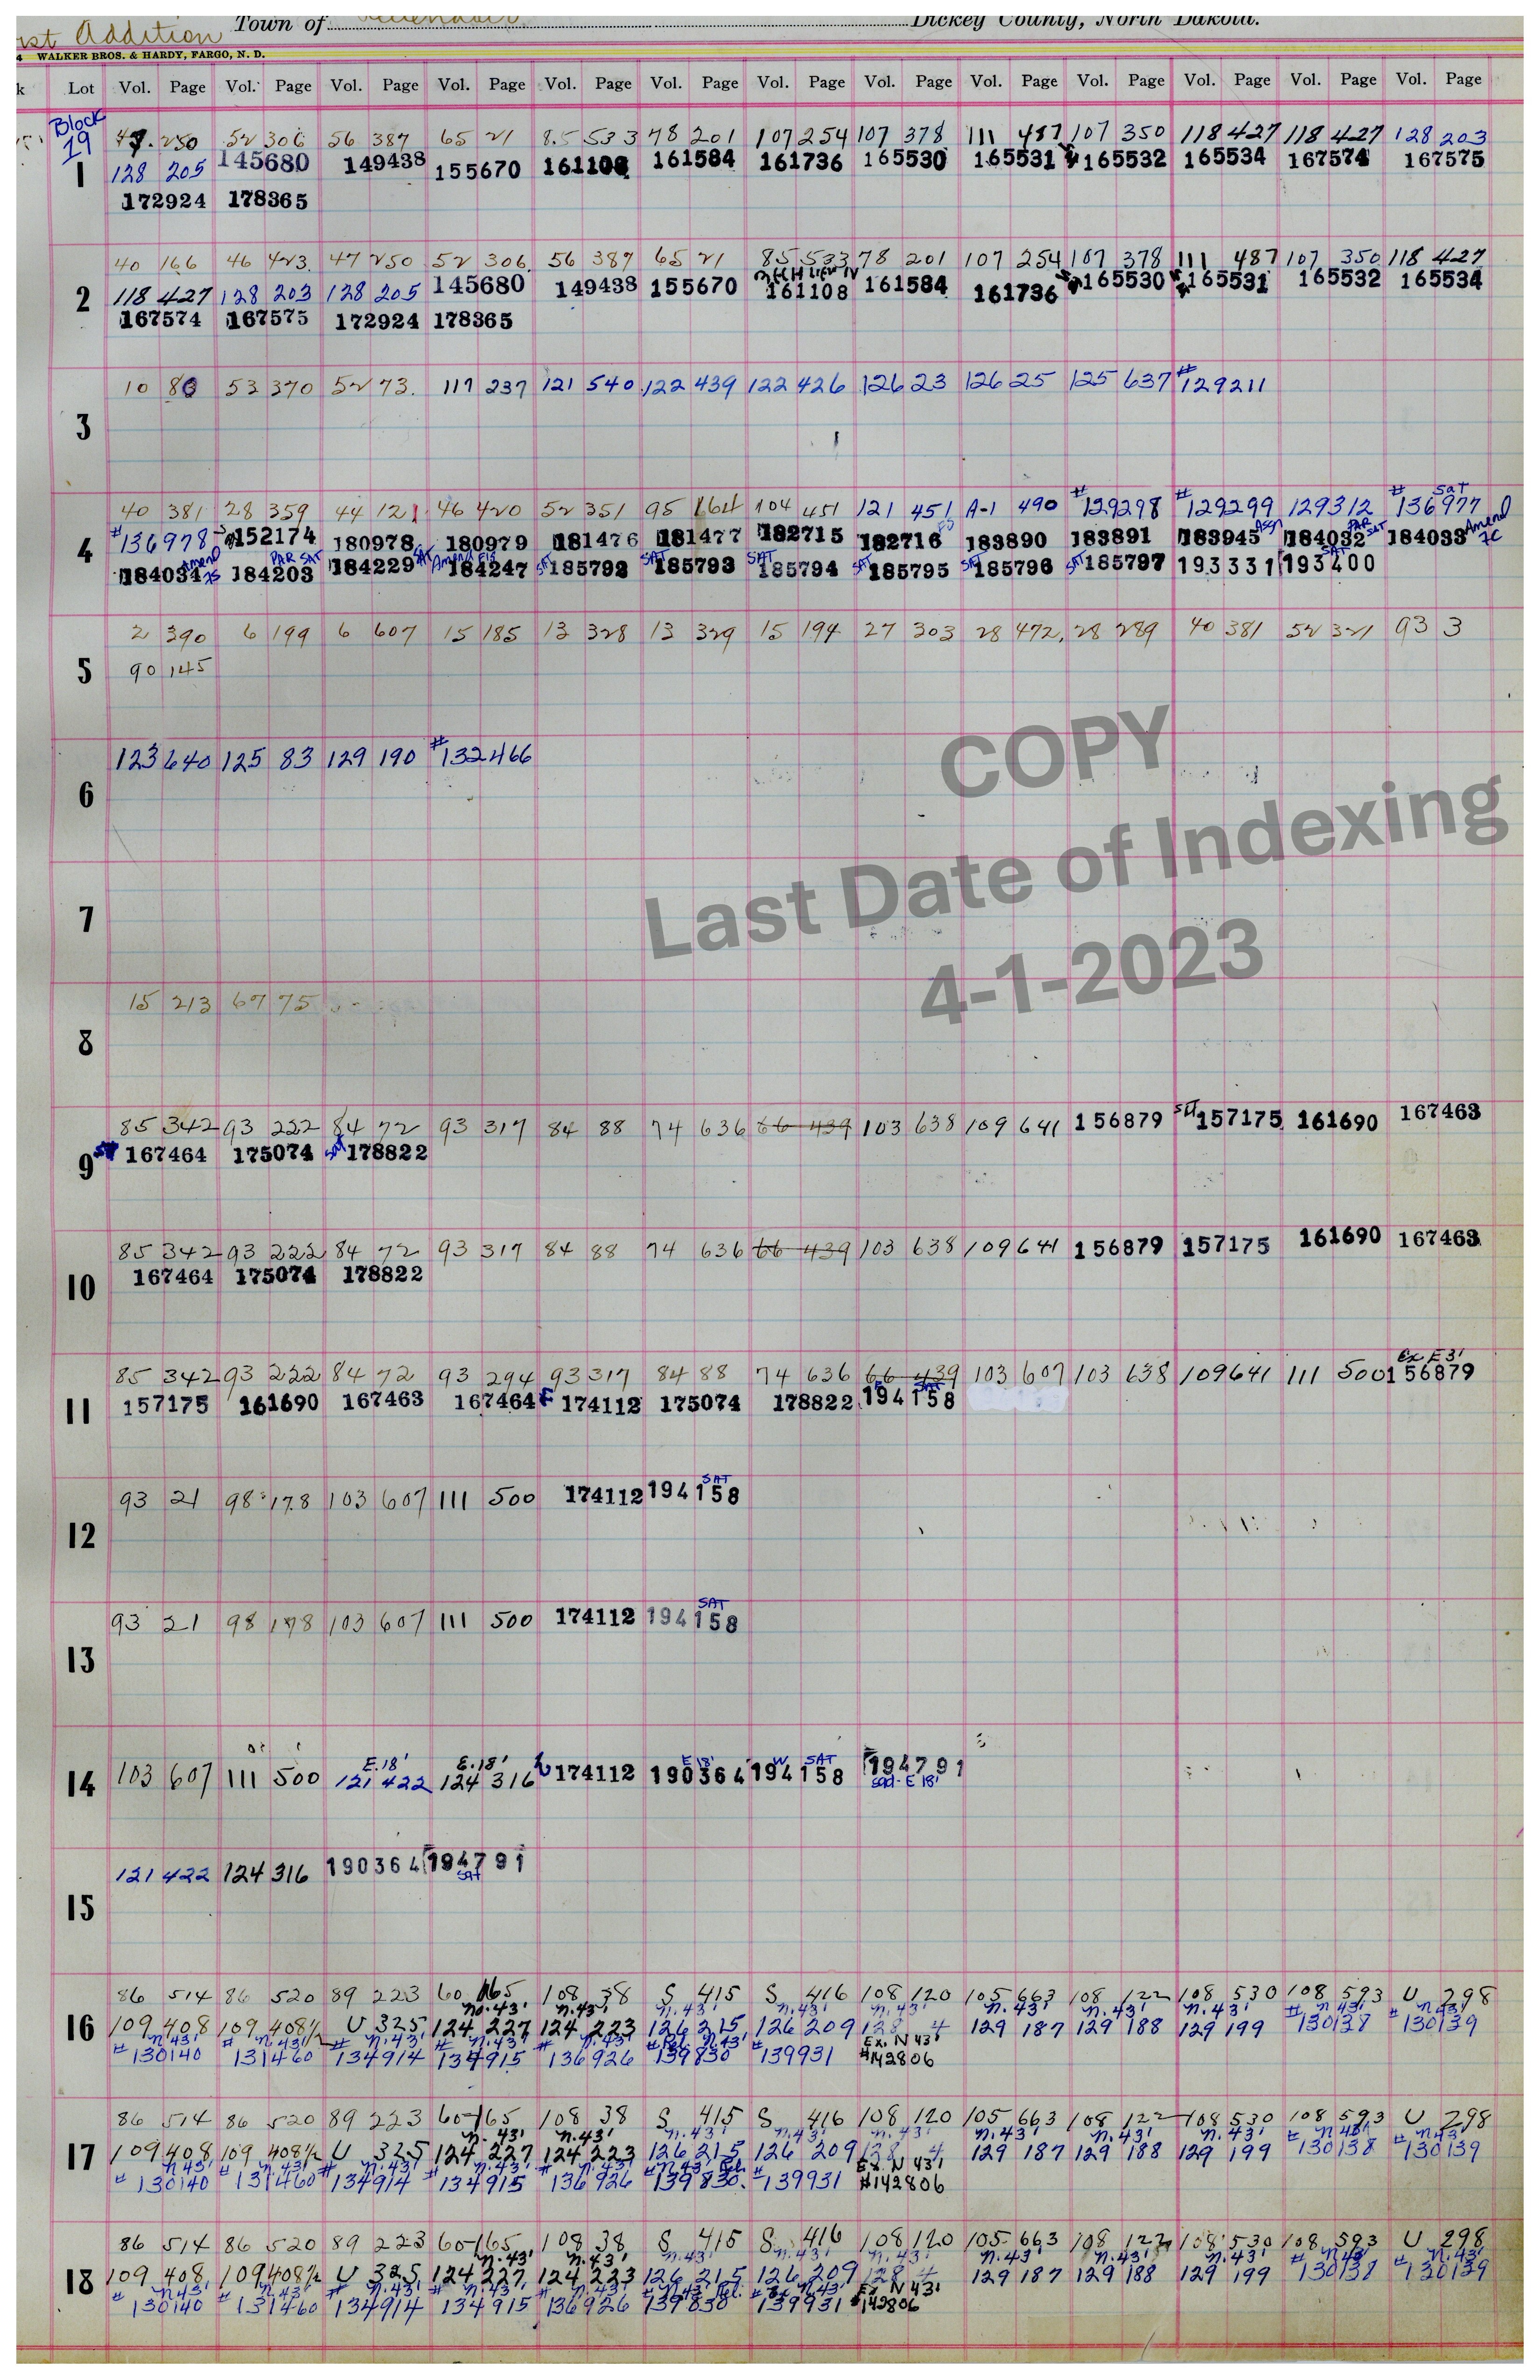 1st Addition Town of Dickey County, North Dakota.
4 WALKER BROS. & HARDY, FARGO, N. D.
k Lot Vol. Page Vol. Page Vol. Page Vol. Page Vol. Page Vol. Page Vol. Page Vol. Page Vol. Page Vol. Page Vol. Page Vol. Page Vol. Page
Block
19
47 250 52 306 56 387 65 21 85 533 78 201 107 254 107 378 111 487 107 350 118 427 118 427 128 203
1 128 205 145680 149438 155670 161108 161584 161736 165530 165531 165532 165534 167574 167575
172924 178365
40 166 46 423 47 250 52 306 56 387 65 21 85 533 78 201 107 254 107 378 111 487 107 350 118 427
2 118 427 128 203 128 205 145680 149438 155670 161108 161584 161736 165530 165531 165532 165534
167574 167575 172924 178365
10 80 53 370 52 73 117 237 121 540 122 439 122 426 126 23 126 25 125 637 #129211
3
40 381 28 359 44 121 46 420 52 351 95 164 104 451 121 451 A-1 490 #129298 #129299 129312 #136977 Sat
4 #136978 152174 180978 180979 181476 181477 182715 182716 183890 183891 183945 Asgn 184032 PAR SAT 184033 Amend FC
184034 Amend FS 184203 PAR SAT 184229 SAT 184247 Amend FS SAT 185792 SAT 185793 SAT 185794 SAT 185795 SAT 185796 SAT 185797 193331 193400 SAT
2 390 6 199 6 607 15 185 13 328 13 329 15 194 27 303 28 472 28 289 40 381 52 321 93 3
5 90 145
123 640 125 83 129 190 #132466
6
COPY
Last Date of Indexing
4-1-2023
7
15 213 67 75
8
85 342 93 222 84 72 93 317 84 88 74 636 66 439 103 638 109 641 156879 SAT 157175 161690 167463
9 167464 175074 SAT 178822
85 342 93 222 84 72 93 317 84 88 74 636 66 439 103 638 109 641 156879 157175 161690 167463
10 167464 175074 178822
85 342 93 222 84 72 93 294 93 317 84 88 74 636 66 439 103 607 103 638 109 641 111 500 Ex E 3' 156879
11 157175 161690 167463 167464 E 174112 175074 178822 E 194158 SAT
93 21 98 178 103 607 111 500 174112 194158 SAT
12
93 21 98 178 103 607 111 500 174112 194158 SAT
13
14 103 607 111 500 E.18' 121 422 E.18' 124 316 174112 E 18' 190364 W 194158 SAT 194791 Sat - E 18'
121 422 124 316 190364 194791 SAT
15
86 514 86 520 89 223 60 165 108 38 S 415 S 416 108 120 105 663 108 122 108 530 108 593 U 298
no.43' n.43' n.43' n.43' n.43' n.43' n.43' n.43' n.43' n.43'
16 109 408 109 408 1/2 U 325 124 227 124 223 126 215 126 209 128 4 129 187 129 188 129 199 #130138 #130139
n.43' n.43' n.43' n.43' n.43' Rel. n.43' Ex. N 43'
#130140 #131460 #134914 #134915 #136926 #139830 #139931 #142806
86 514 86 520 89 223 60-165 108 38 S 415 S 416 108 120 105 663 108 122 108 530 108 593 U 298
n.43' n.43' n.43' n.43' n.43' n.43' n.43' n.43' n.43' n.43'
17 109 408 109 408 1/2 U 325 124 227 124 223 126 215 126 209 128 4 129 187 129 188 129 199 #130138 #130139
n.43' n.43' n.43' n.43' n.43' n.43' Rel. Ex. N 43'
#130140 #131460 #134914 #134915 #136926 #139830 #139931 #142806
86 514 86 520 89 223 60-165 108 38 S 415 S 416 108 120 105 663 108 122 108 530 108 593 U 298
n.43' n.43' n.43' n.43' n.43' n.43' n.43' n.43' n.43' n.43'
18 109 408 109 408 1/2 U 325 124 227 124 223 126 215 126 209 128 4 129 187 129 188 129 199 #130138 #130139
n.43' n.43' n.43' n.43' n.43' n.43' Rel. n.43' Ex. N 43'
#130140 #131460 #134914 #134915 #136926 #139830 #139931 #142806